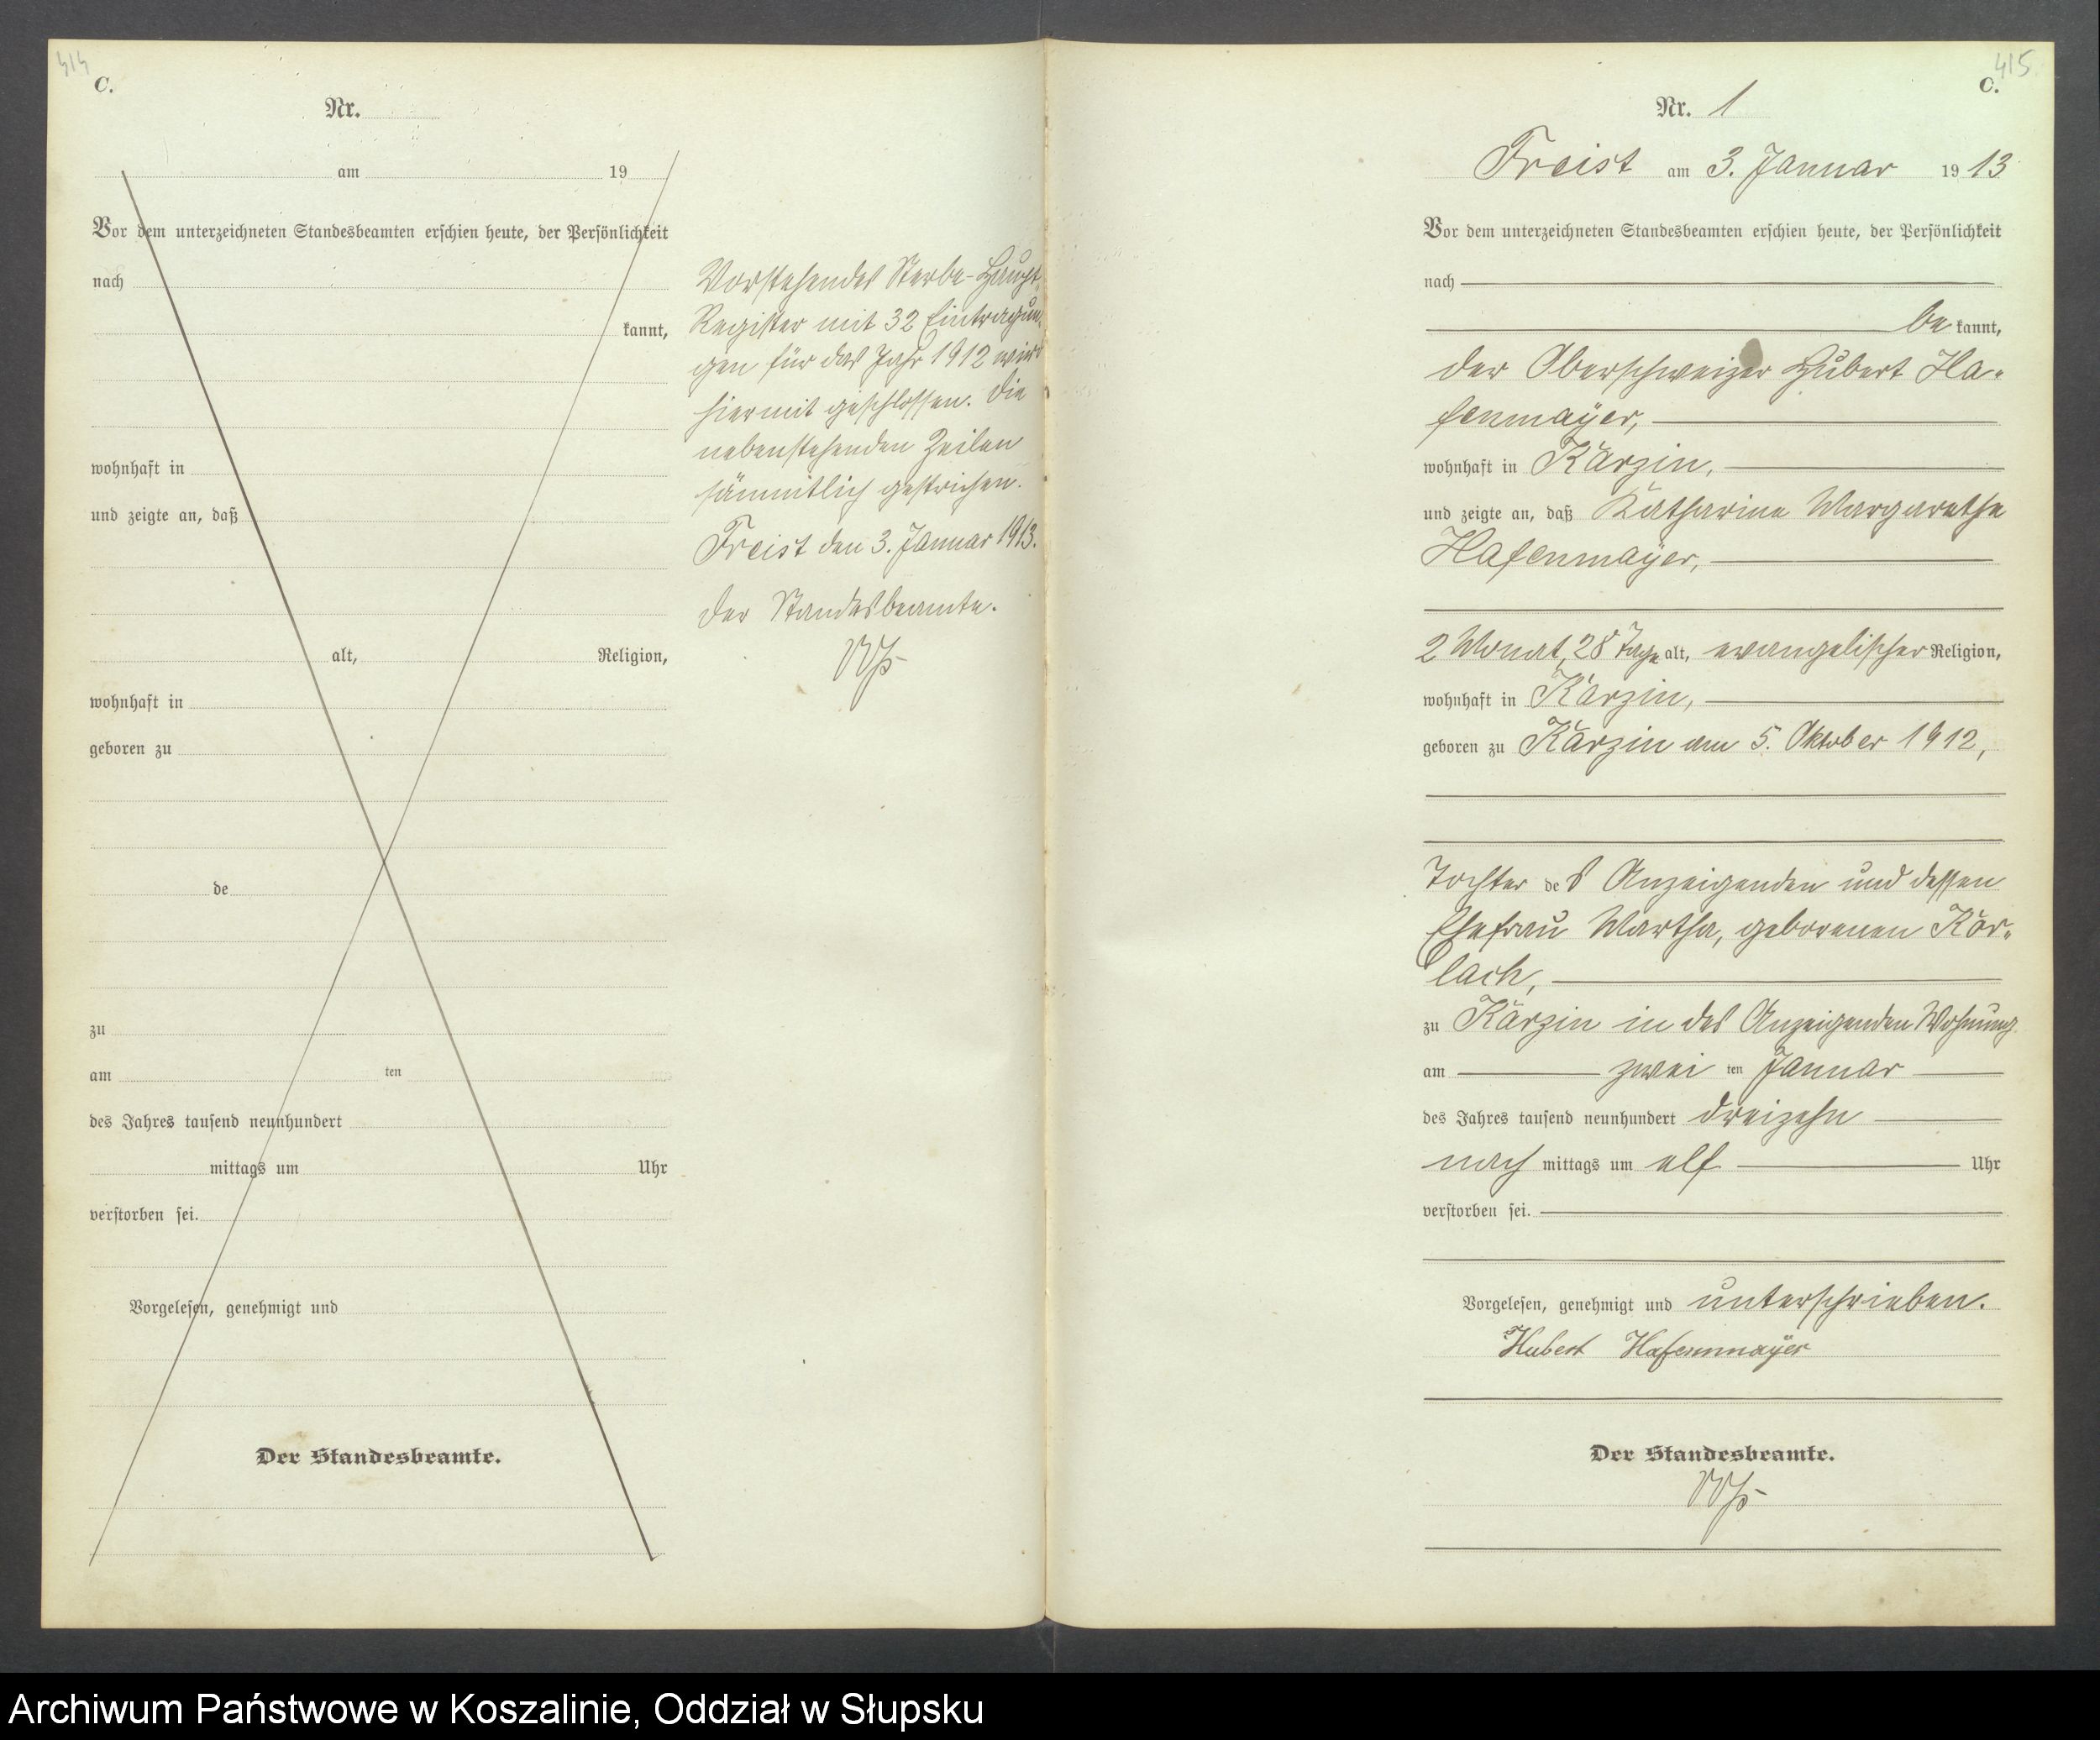 414
C.
Nr.
am 19
Vor dem unterzeichneten Standesbeamten erschien heute, der Persönlichkeit
nach
kannt,
wohnhaft in
und zeigte an, daß
alt, Religion,
wohnhaft in
geboren zu
de
zu
am ten
des Jahres tausend neunhundert
mittags um Uhr
verstorben sei.
Vorgelesen, genehmigt und
Der Standesbeamte.
Vorstehendes Sterbe-Haupt-
Register mit 32 Eintragun-
gen für das Jahr 1912 wird
hiermit geschlossen. Die
nebenstehenden Zeilen
sämmtlich gestrichen.
Freist den 3. Januar 1913.
Der Standesbeamte.
415
C.
Nr. 1
Freist am 3. Januar 1913
Vor dem unterzeichneten Standesbeamten erschien heute, der Persönlichkeit
nach
be kannt,
der Oberschweizer Hubert Ha-
fenmayer,
wohnhaft in Kärzin,
und zeigte an, daß Katharine Margarethe
Hafenmayer,
2 Monat, 28 Tage alt, evangelischer Religion,
wohnhaft in Kärzin,
geboren zu Kärzin am 5. Oktober 1912,
Tochter des Anzeigenden und dessen
Ehefrau Martha, geborenen Kör-
lach,
zu Kärzin in des Anzeigenden Wohnung
am zwei ten Januar
des Jahres tausend neunhundert dreizehn
nach mittags um elf Uhr
verstorben sei.
Vorgelesen, genehmigt und unterschrieben.
Hubert Hafenmayer
Der Standesbeamte.
Archiwum Państwowe w Koszalinie, Oddział w Słupsku